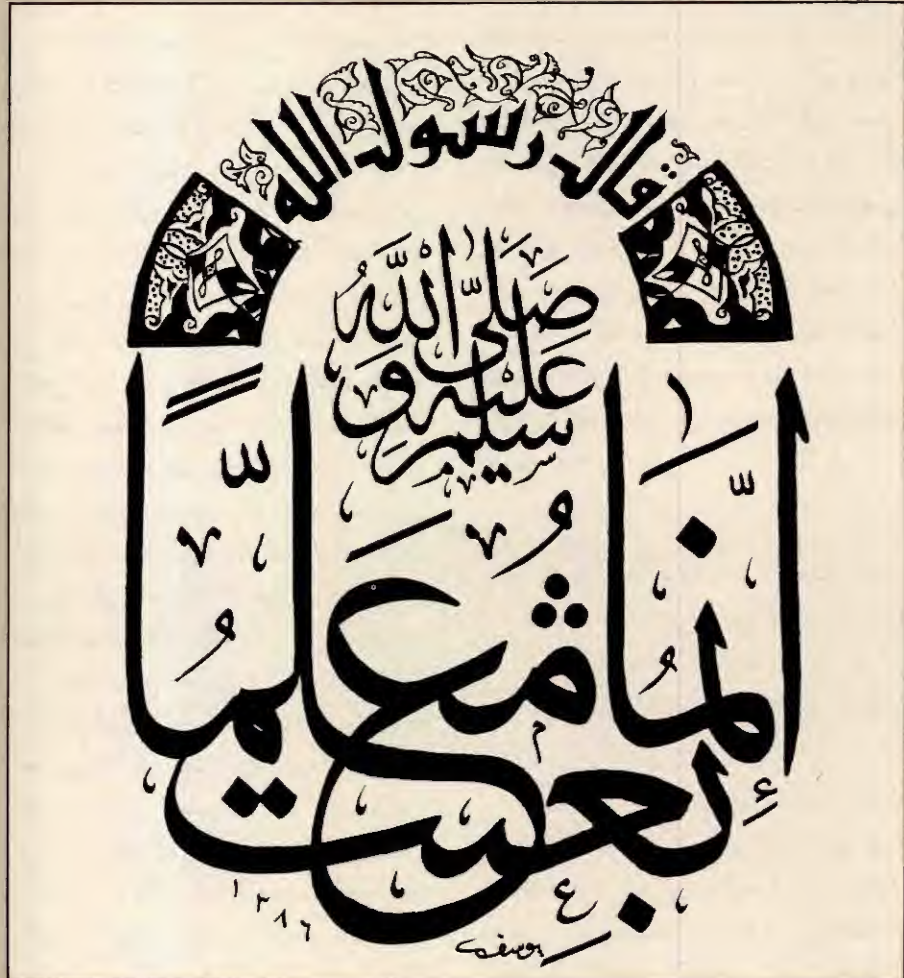 قال رسول الله
صَلَّى اللهُ
عَلَيْهِ وَ
سَلَّمَ
إِنَّمَا بُعِثْتُ مُعَلِّمًا
١٣٨٦
يوسف